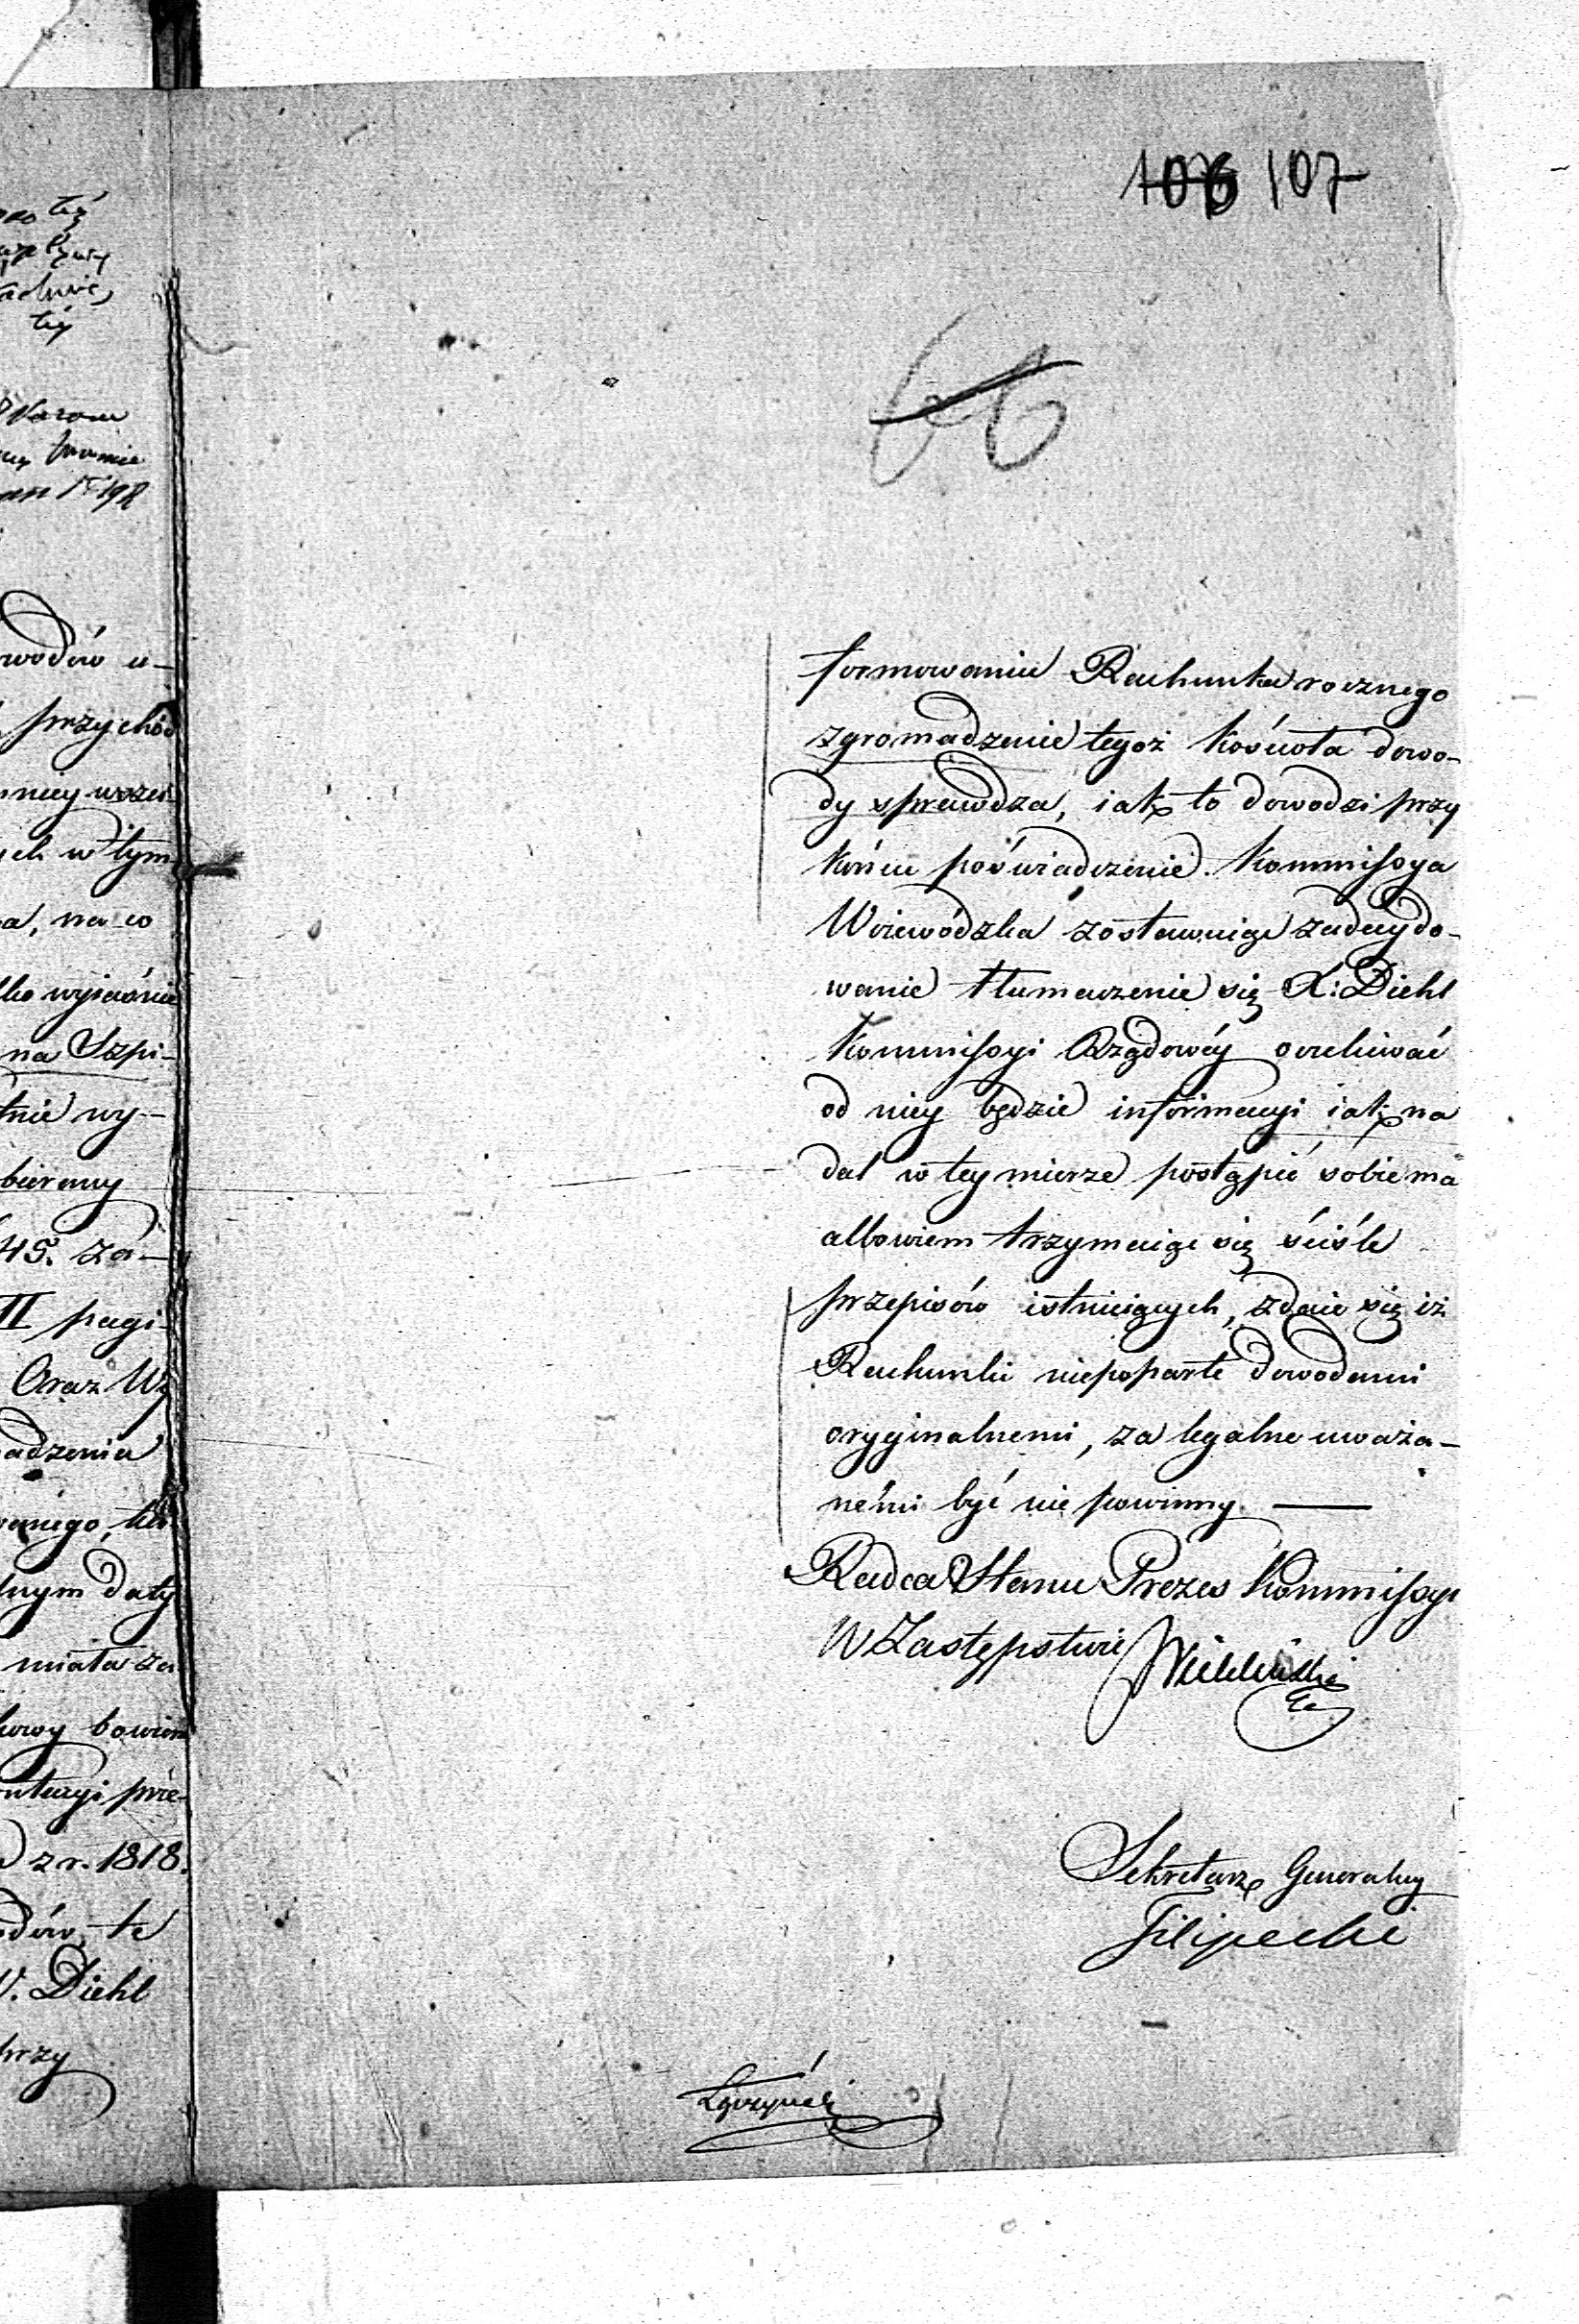 106 107
66
formowaniu Rachunku rocznego
zgromadzenie tegoż kościoła dowo-
dy sprawdza, iak to dowodzi przy
końcu poświadczenie. Kommissya
Woiewódzka zostawuiąc zadecydo-
wanie tłumaczenie się X: Diehl
Kommissyi Rządowéy oczekiwać
od niey będzie informacyi iak na
dal w tey mierze postąpić sobie ma
albowiem trzymaiąc się ściśle
przepisów istnieiących, zdaie się iż
Rachunki niepoparte dowodami
oryginalnemi, za legalne uważa-
némi być nie powinny —
Radca Stanu Prezes Kommissyi
W Zastępstwie
Sekretarz Generalny
Filipecki
wodów u-
przychód
ych w tym
a, na co
na Szpi-
tnie wy-
bierany
45. za-
II pagi-
Oraz W
adzenia
lnym daty
miała za
z r. 1818.
odów, te
Diehl
przy